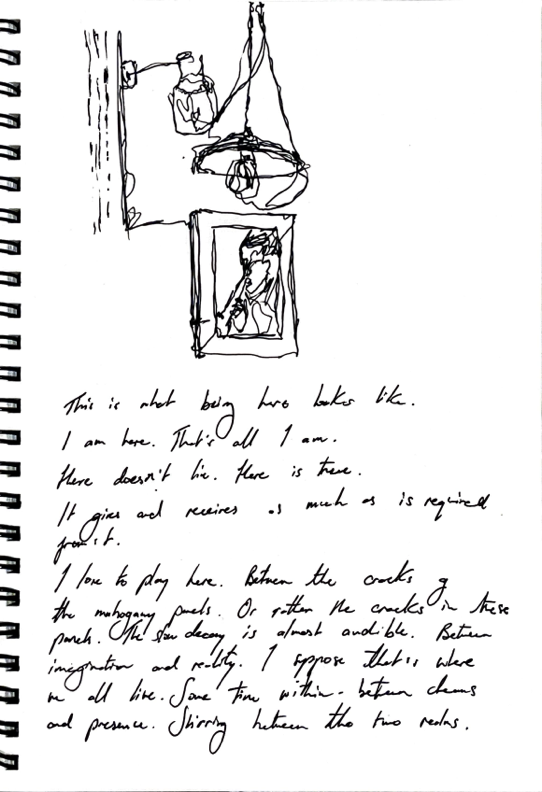 This is what being here looks like.
I am here. That's all I am.
Here doesn't lie. Here is true.
It gives and receives as much as is required
from it.
I love to play here. Between the cracks of
the mahogany panels. Or rather the cracks in these
panels. The slow decay is almost audible. Between
imagination and reality. I suppose that's where
we all live. Some time within - between dreams
and presence. Skirring between the two realms.